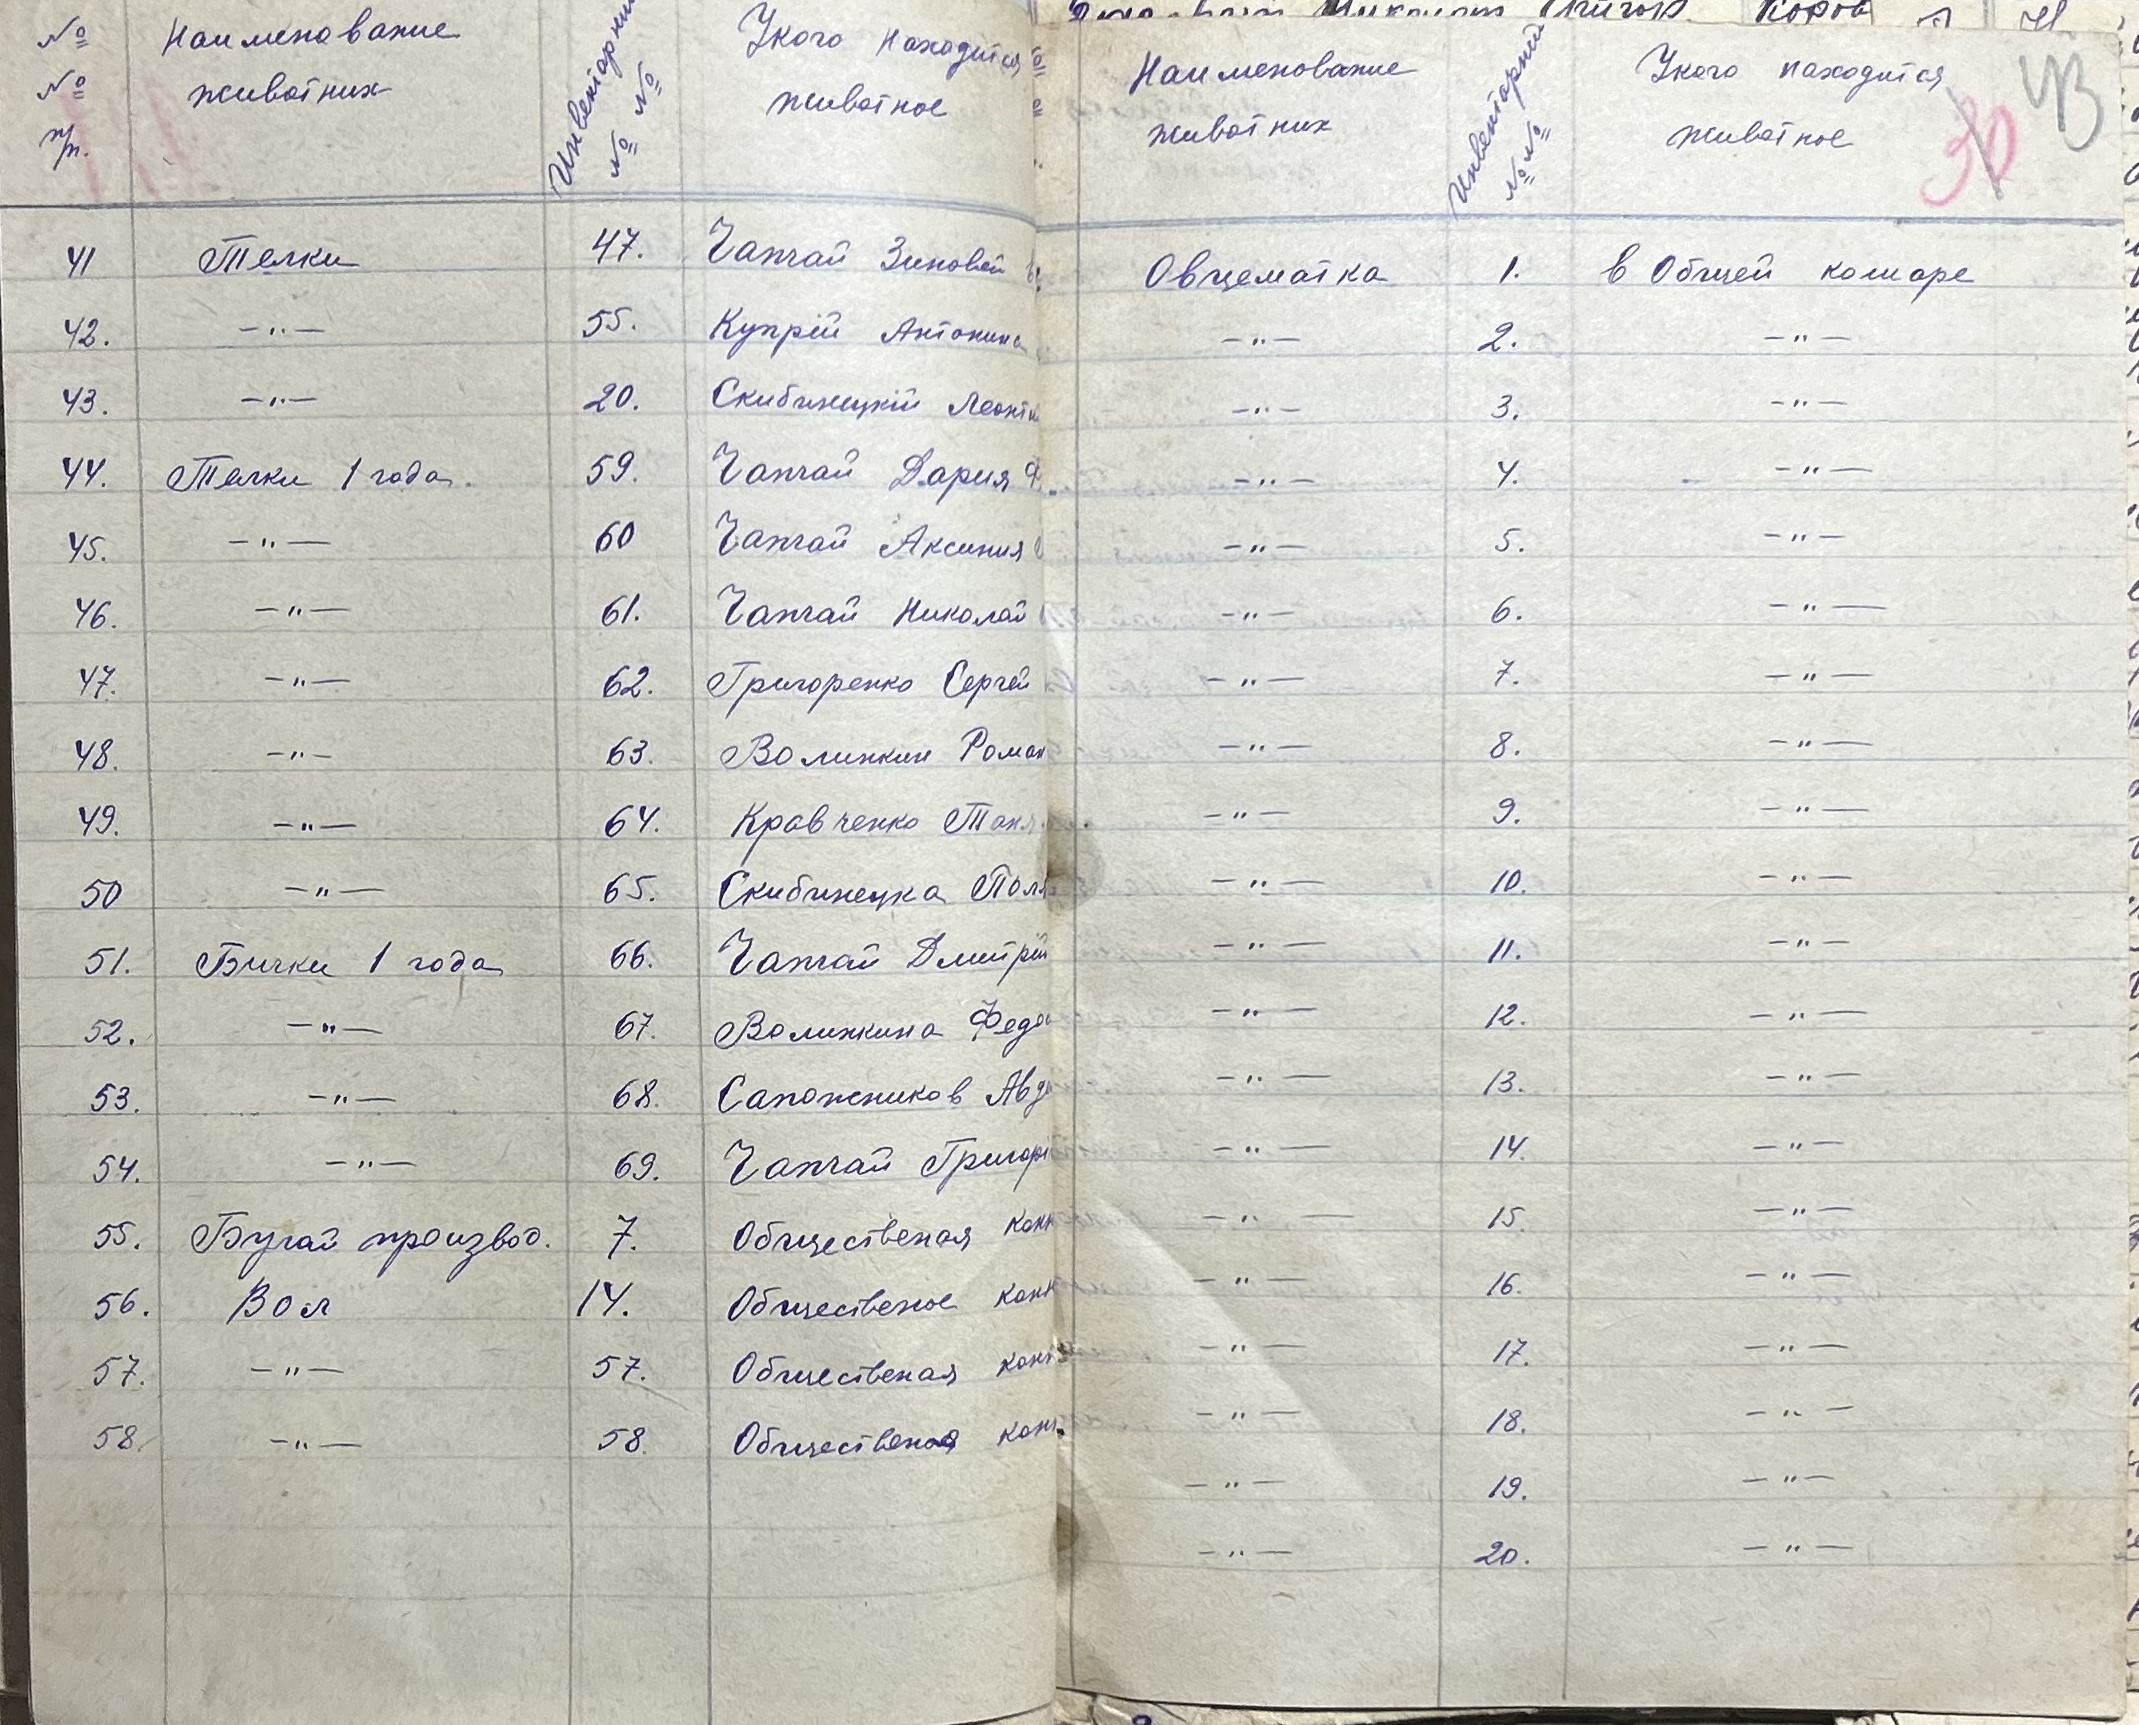 № № п/п. Наименование животних Инвентарний № № У кого находится животное
41 Телки 47. Чапчай Зиновей
42. —"— 55. Купрій Антонина
43. —"— 20. Скибинецкій Леонт
44. Телки 1 года. 59. Чапчай Дария Ф
45. —"— 60 Чапчай Аксиния
46. —"— 61. Чапчай Николай
47. —"— 62. Григоренко Сергей
48. —"— 63. Волинкин Роман
49. —"— 64. Кравченко
50 —"— 65. Скибинецка
51. Бички 1 года 66. Чапчай Дмитрій
52. —"— 67. Волинкина Федо
53. —"— 68. Сапожников Авдо
54. —"— 69. Чапчай Григорі
55. Бугай производ. 7. Общественая кон
56. Вол 14. Общественое кон
57. —"— 57. Общественая кон
58. —"— 58. Общественая кон
Коров
Наименование животних Инвентарний № № У кого находится животное
30 43
Овцематка 1. в Общей кошаре
—"— 2. —"—
—"— 3. —"—
—"— 4. —"—
—"— 5. —"—
—"— 6. —"—
—"— 7. —"—
—"— 8. —"—
—"— 9. —"—
—"— 10. —"—
—"— 11. —"—
—"— 12. —"—
—"— 13. —"—
—"— 14. —"—
—"— 15. —"—
—"— 16. —"—
—"— 17. —"—
—"— 18. —"—
—"— 19. —"—
—"— 20. —"—